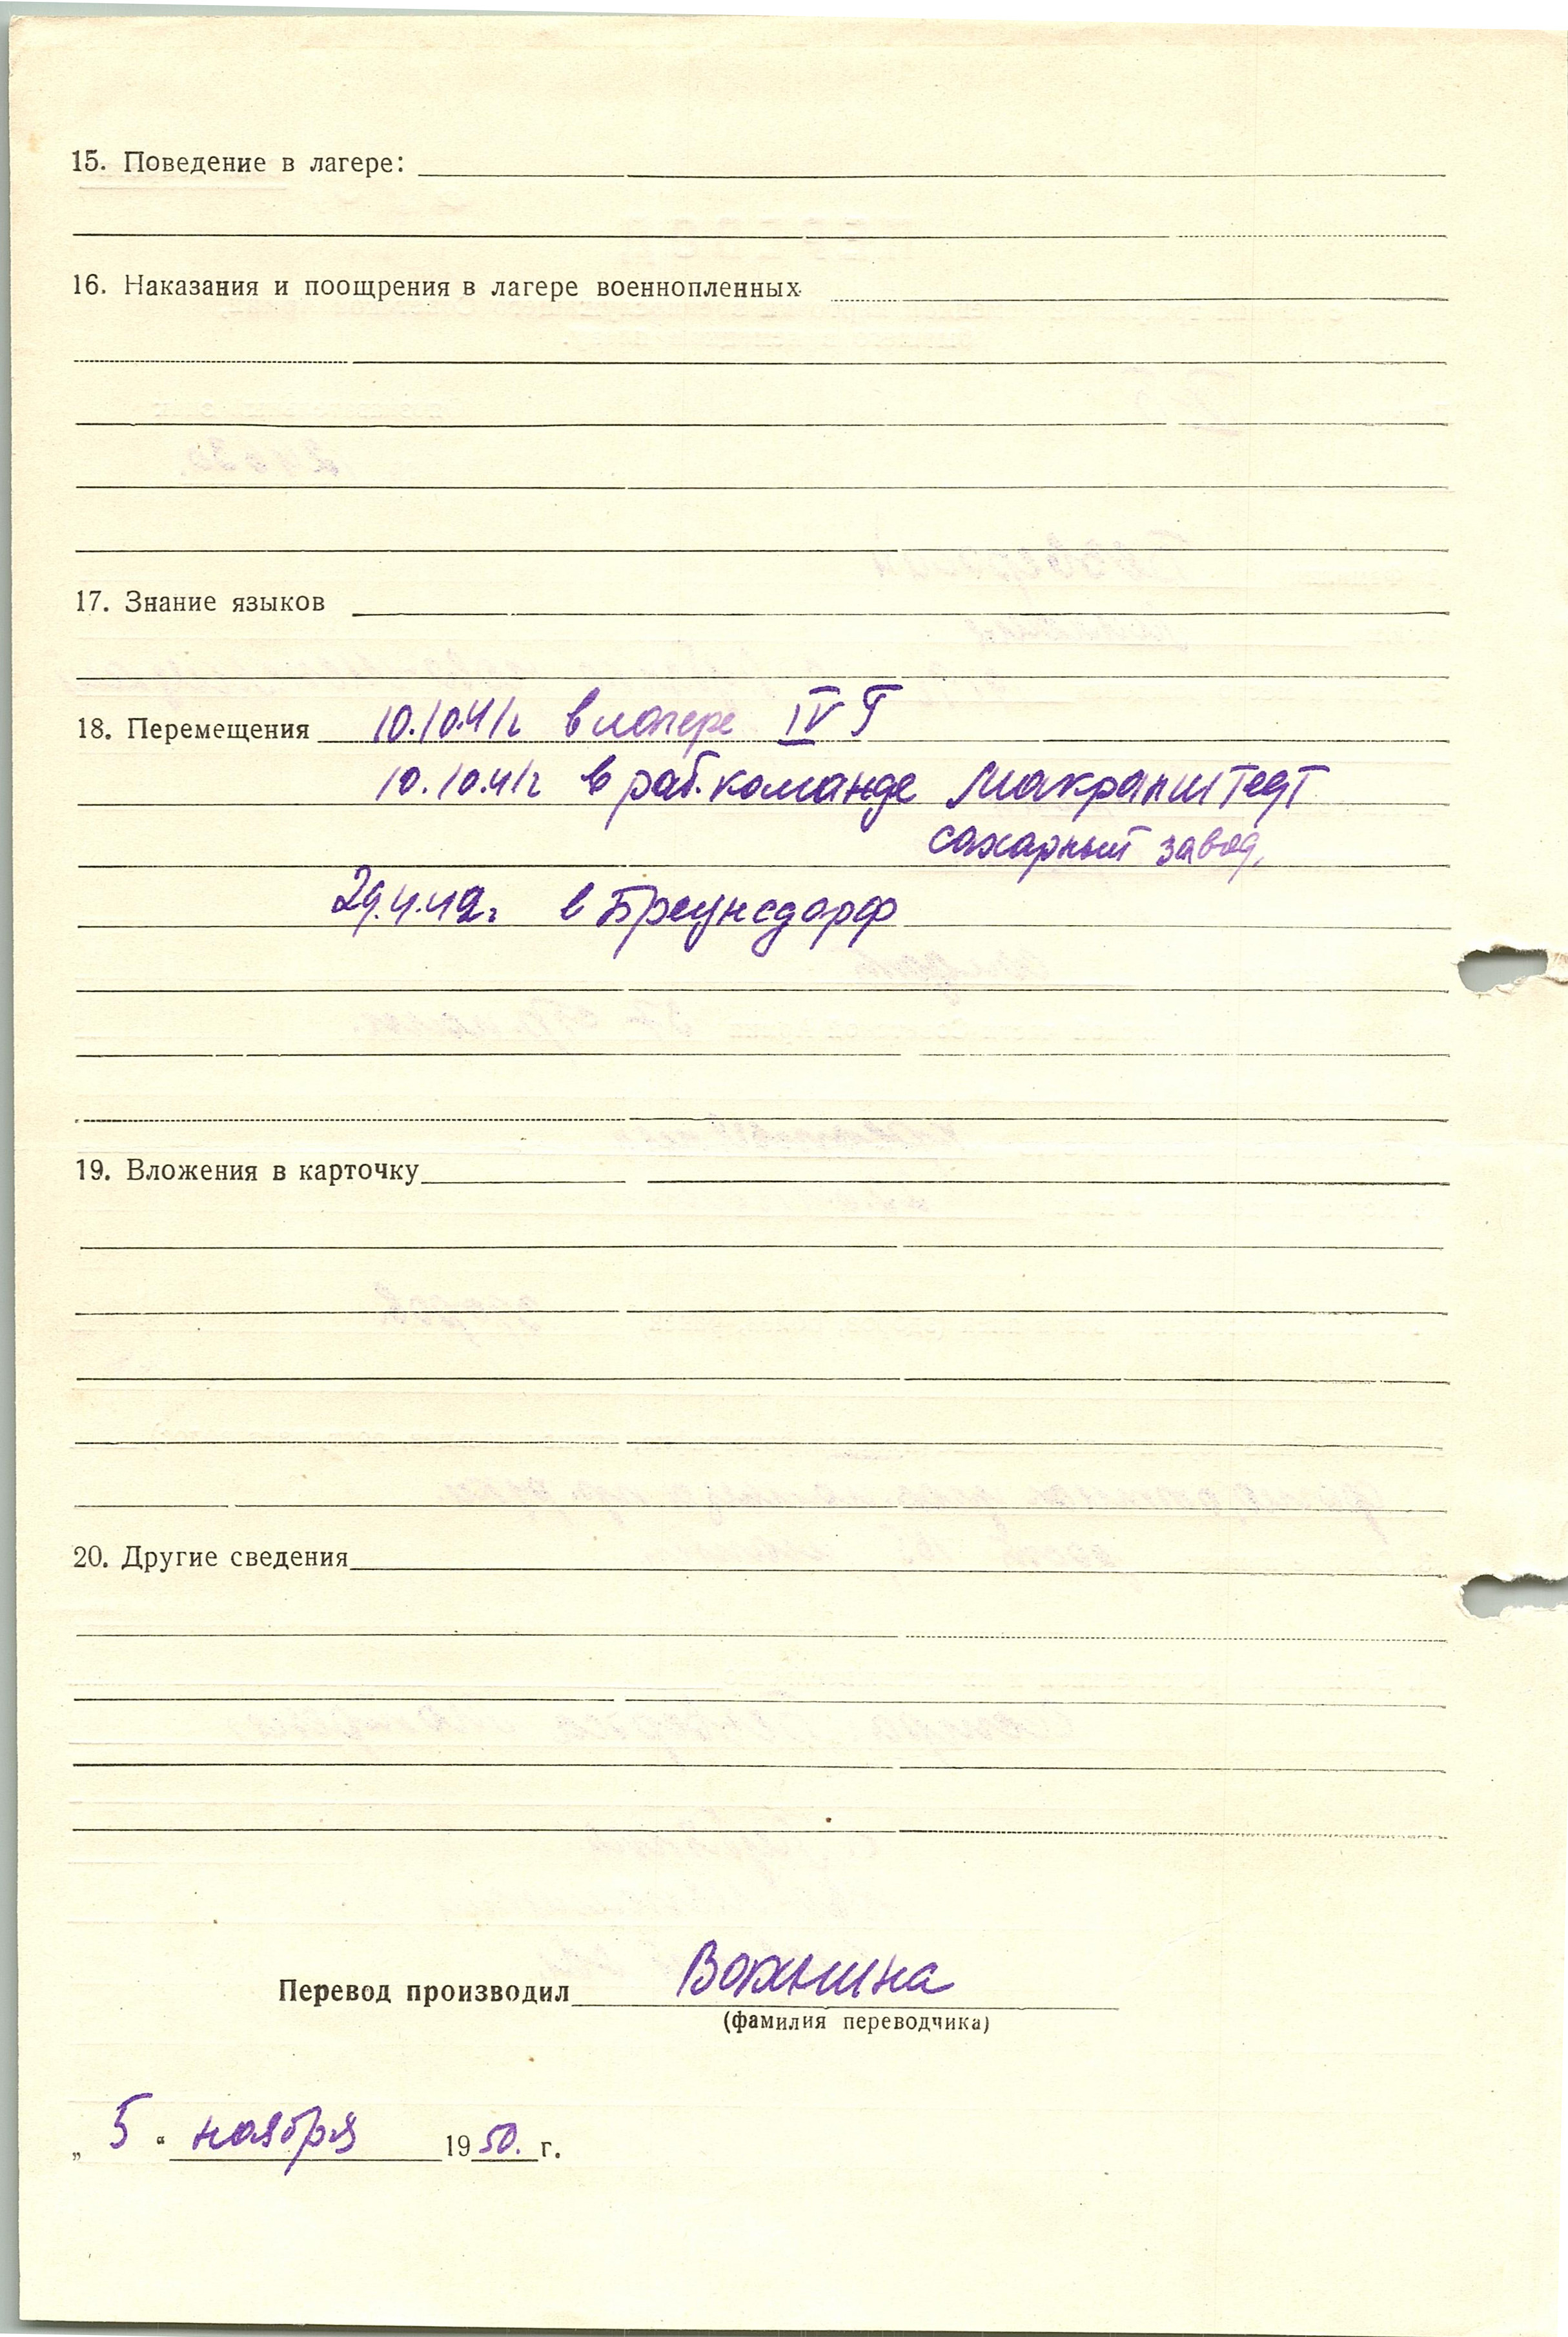 15. Поведение в лагере:
16. Наказания и поощрения в лагере военнопленных
17. Знание языков
18. Перемещения 10.10.41г в лагере IV Г
10.10.41г в раб. команде Макранштедт
сахарный завод,
29.4.42г. в Браунсдорф
19. Вложения в карточку
20. Другие сведения
Перевод производил
(фамилия переводчика)
„ 5 “ ноября 1950. г.